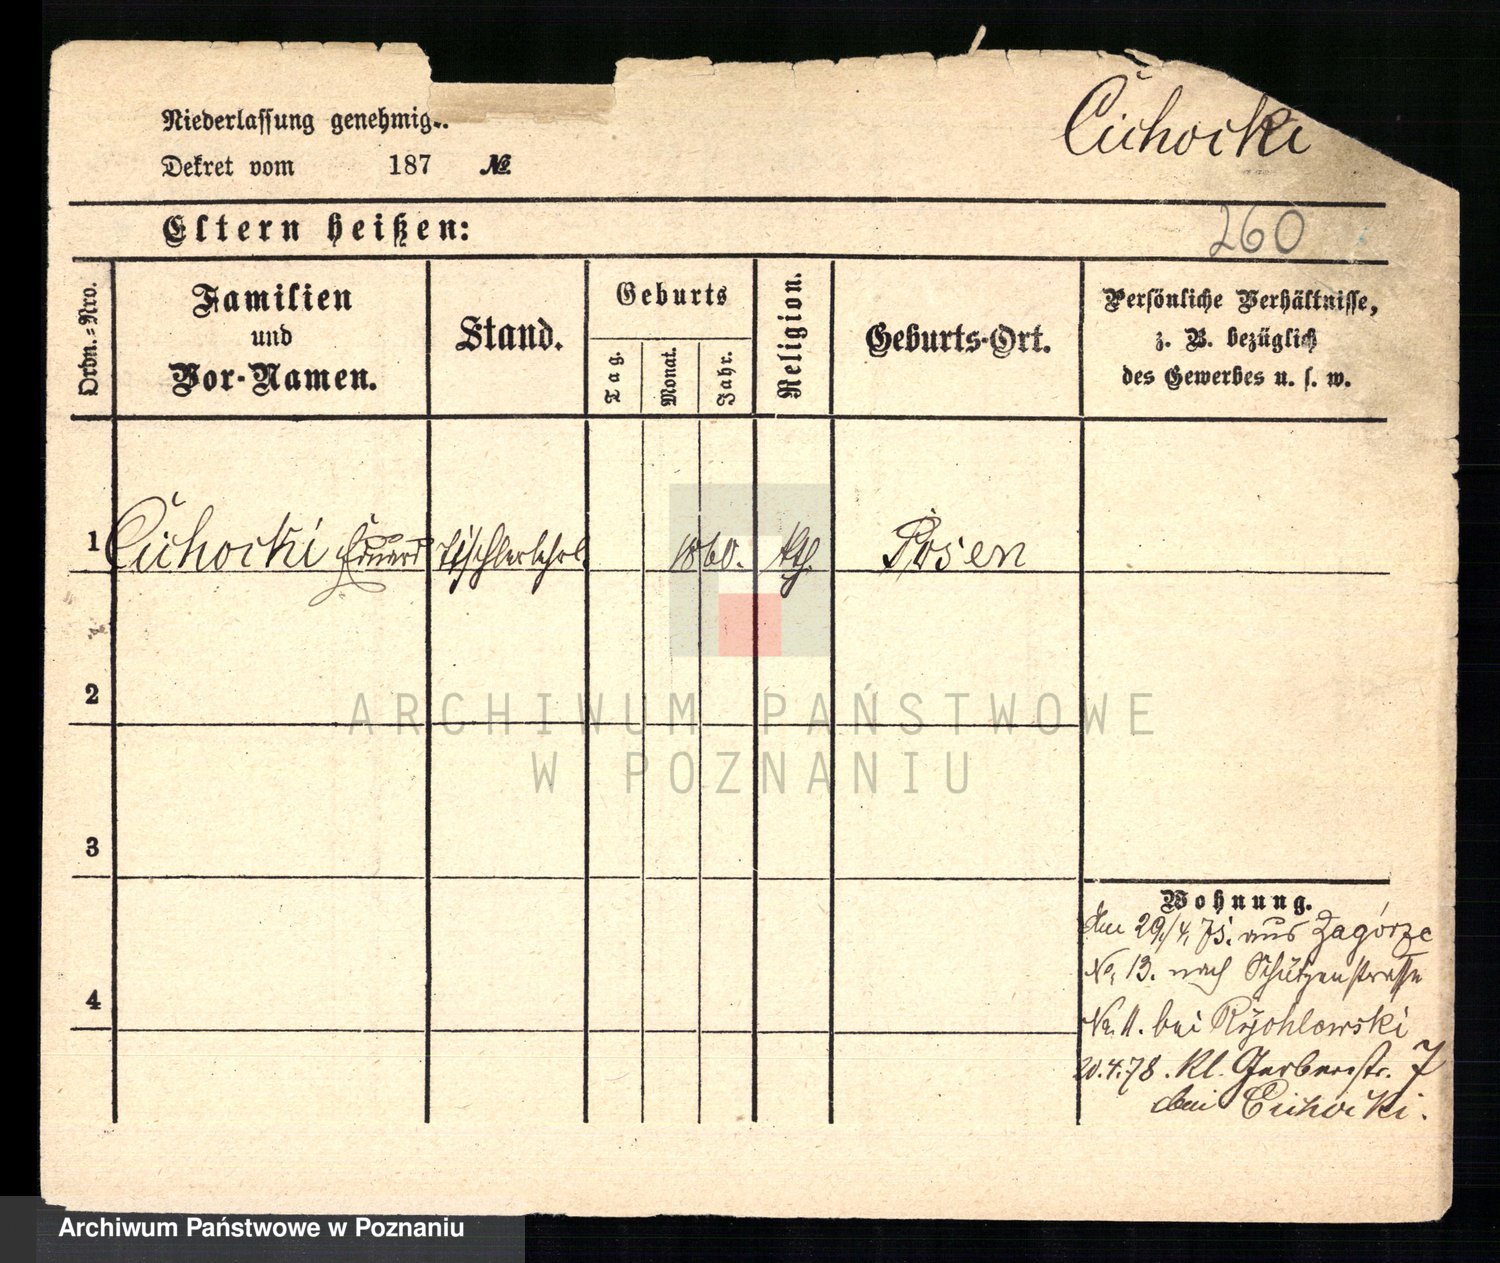 Cichocki
Niederlassung genehmig
Dekret vom 187 №
260
Eltern heißen:
Ordn.=Nro.
Familien
und
Vor-Namen.
Stand.
Geburts
Tag.
Monat.
Jahr.
Religion.
Geburts-Ort.
Persönliche Verhältnisse,
z. B. bezüglich
des Gewerbes u. s. w.
1 Cichocki Eduard Tischlerlehrl. 1860. kth. Posen
2
3
4
Wohnung.
den 29/4. 75. aus Zagórze
No. 13. nach Schützenstrasse
No. 11. bei Rychlewski
20.4.78. Kl. Gerberstr. 7
bei Cichocki.
ARCHIWUM PAŃSTWOWE
W POZNANIU
Archiwum Państwowe w Poznaniu